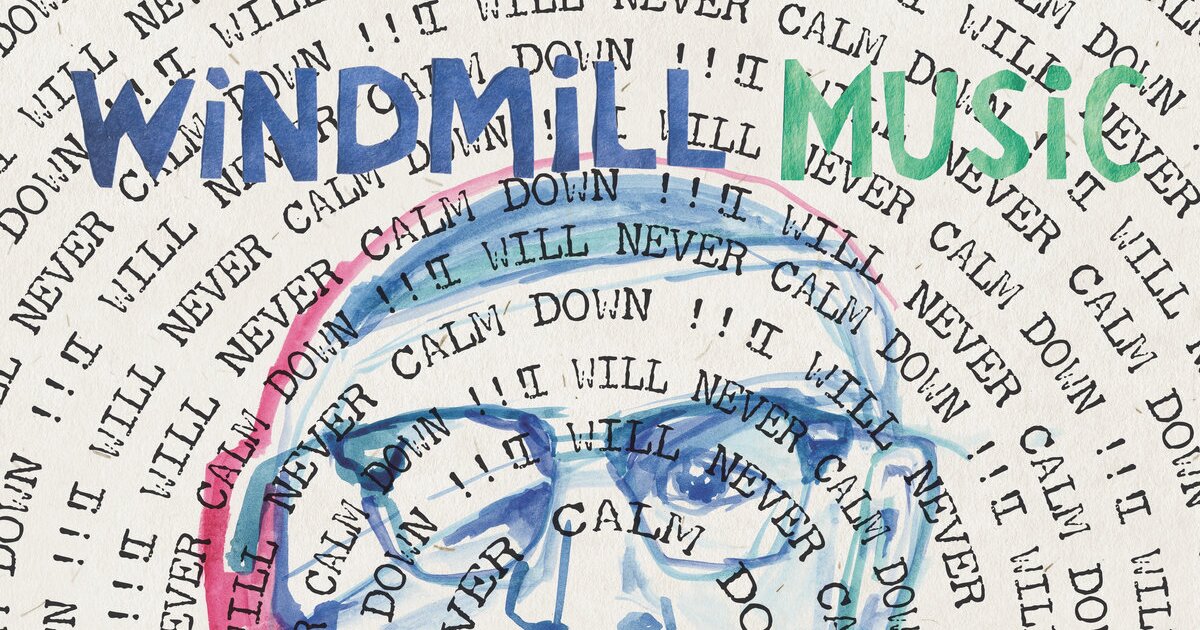 WiNDMiLL MUSiC
DOWN !!! I WILL NEVER CALM DOWN
I WILL NEVER CALM DOWN !!! I WILL NEVER CALM DOWN
DOWN !!! I WILL NEVER CALM DOWN !!! I WILL NEVER
NEVER CALM DOWN !!! I WILL NEVER CALM DOWN
!!! I WILL NEVER CALM DOWN !!! I WILL NEVER CALM DOWN
!!! I WILL NEVER CALM DOWN !!! I WILL NEVER CALM DOWN !!! I WILL
NEVER CALM DOWN !!! I WILL NEVER CALM DOWN !!! I WILL
WILL NEVER CALM DOWN !!! I WILL NEVER
CALM DOWN !!! I WILL NEVER CALM DOWN
DOWN !!! I WILL NEVER
CALM